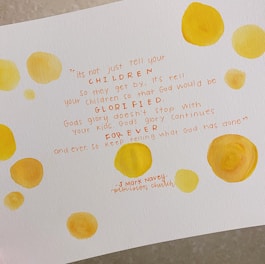 "its not just tell your
CHILDREN
so they get by, its tell
your children so that God would be
GLORIFIED.
God's glory doesn't stop with
your kids God's glory continues
FOREVER
and ever. so keep telling what God has done."